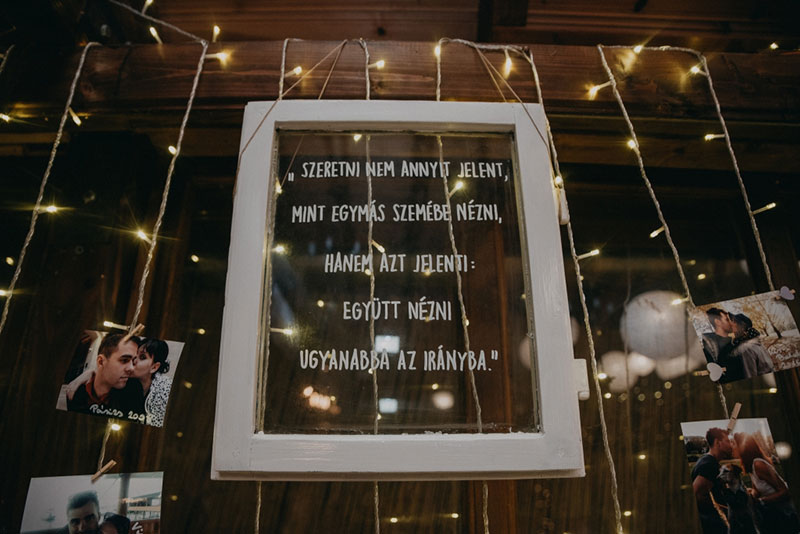 „ SZERETNI NEM ANNYIT JELENT,
MINT EGYMÁS SZEMÉBE NÉZNI,
HANEM AZT JELENTI:
EGYÜTT NÉZNI
UGYANABBA AZ IRÁNYBA."